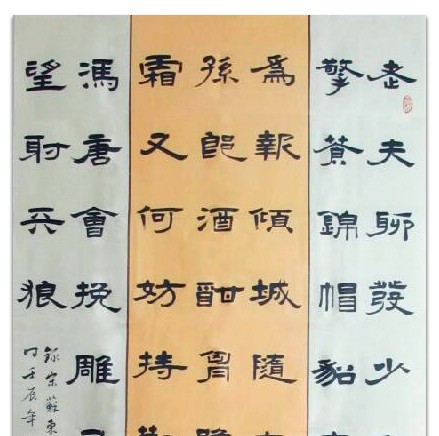 老夫聊發少
擎蒼錦帽貂
為報傾城隨
孫郎酒酣胷
霜又何妨持
馮唐會挽雕
望射天狼
錄宋蘇東
壬辰年